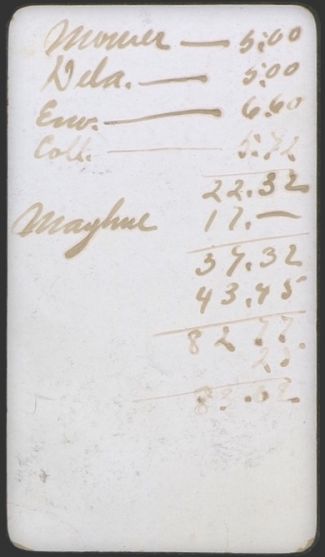 Mower — 5.00
Dela. — 5.00
Env. — 6.60
Coll. — 5.72
22.32
Mayhue 17.—
39.32
43.45
82.77
25
83.02